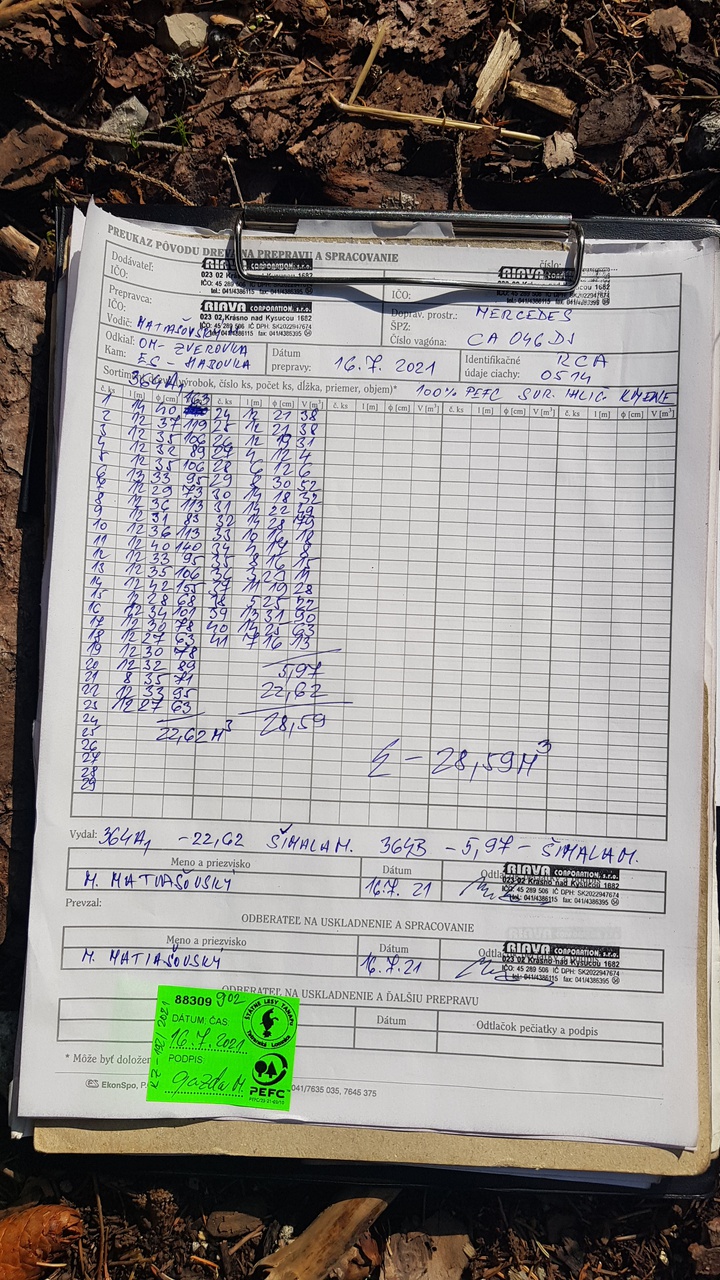 PREUKAZ PÔVODU DREVA NA PREPRAVU A SPRACOVANIE
číslo:
Dodávateľ:
IČO:
RIAVA CORPORATION, s.r.o.
023 02 Krásno nad Kysucou 1682
tel.: 041/4386115 fax: 041/4386395
RIAVA CORPORATION, s.r.o.
IČO:
Prepravca:
IČO:
RIAVA CORPORATION, s.r.o.
023 02 Krásno nad Kysucou 1682
IČO: 45 289 506 IČ DPH: SK2022947674
tel.: 041/4386115 fax: 041/4386395
Vodič: MATIAŠOVSKÝ
Doprav. prostr.: MERCEDES
ŠPZ:
Číslo vagóna: CA 046 DJ
Odkiaľ: OM- ZVEROVKA
Kam: ES- HABOVKA
Dátum prepravy: 16.7. 2021
Identifikačné údaje ciachy: RCA 0514
364A1
výrobok, číslo ks, počet ks, dĺžka, priemer, objem)* 100% PEFC SUR. IHLIČ KMENE
č. ks l [m] ϕ [cm] č. ks l [m] ϕ [cm] V [m³] č. ks l [m] ϕ [cm] V [m³] č. ks l [m] ϕ [cm] V [m³] č. ks l [m] ϕ [cm] V [m³]
1 14 40 163 24 12 21 38
2 12 37 119 25 12 21 38
3 12 35 106 26 12 19 31
4 12 32 89
5 12 35 106 28 6 12 6
6 33 95 29 8 30 52
7 12 29 73 30 14 18 32
8 12 36 113 31 14 22 49
9 12 31 83 32 14 28
10 12 36 113 33 10 16 18
11 12 40 140 34
12 12 33 95 35 8 16 15
13 12 35 106 36 3 23 11
14 12 42 155 37 11 19 28
15 12 28 68 5 25 22
16 12 34 101 39 13 31 90
17 12 30 78 40 14 25 63
18 12 27 63 41 7 16 13
19 12 30 78
20 12 32 89 5,97
21 8 35 71 22,62
22 12 33 95
23 12 27 63 28,59
24
25 22,62 M³
26 Σ - 28,59 M³
27
28
29
Vydal: 364A1 - 22,62 ŠIMALA M. 364B - 5,97 - ŠIMALA M.
Meno a priezvisko Dátum
M. MATIAŠOVSKÝ 16.7. 21
RIAVA CORPORATION, s.r.o.
023 02 Krásno nad Kysucou 1682
IČO: 45 289 506 IČ DPH: SK2022947674
tel.: 041/4386115 fax: 041/4386395
Prevzal:
ODBERATEĽ NA USKLADNENIE A SPRACOVANIE
Meno a priezvisko Dátum
M. MATIAŠOVSKÝ 16.7.21
RIAVA CORPORATION, s.r.o.
023 02 Krásno nad Kysucou 1682
IČO: 45 289 506 IČ DPH: SK2022947674
tel.: 041/4386115 fax: 041/4386395
ODBERATEĽ NA USKLADNENIE A ĎALŠIU PREPRAVU
Dátum Odtlačok pečiatky a podpis
88309 902
DÁTUM, ČAS
16.7.2021
PODPIS:
gazda M.
ŠTÁTNE LESY TANAPU
Tatranská Lomnica
PEFC
* Môže byť doložen
EkonSpo, P.
041/7635 035, 7645 375